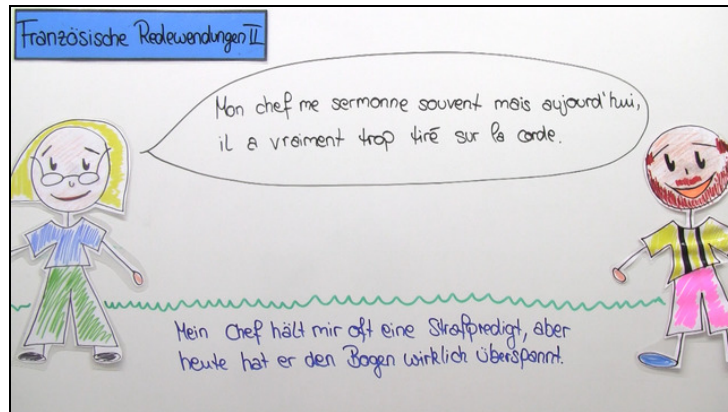 Französische Redewendungen II
Mon chef me sermonne souvent mais aujourd'hui,
il a vraiment trop tiré sur la corde.
Mein Chef hält mir oft eine Strafpredigt, aber
heute hat er den Bogen wirklich überspannt.